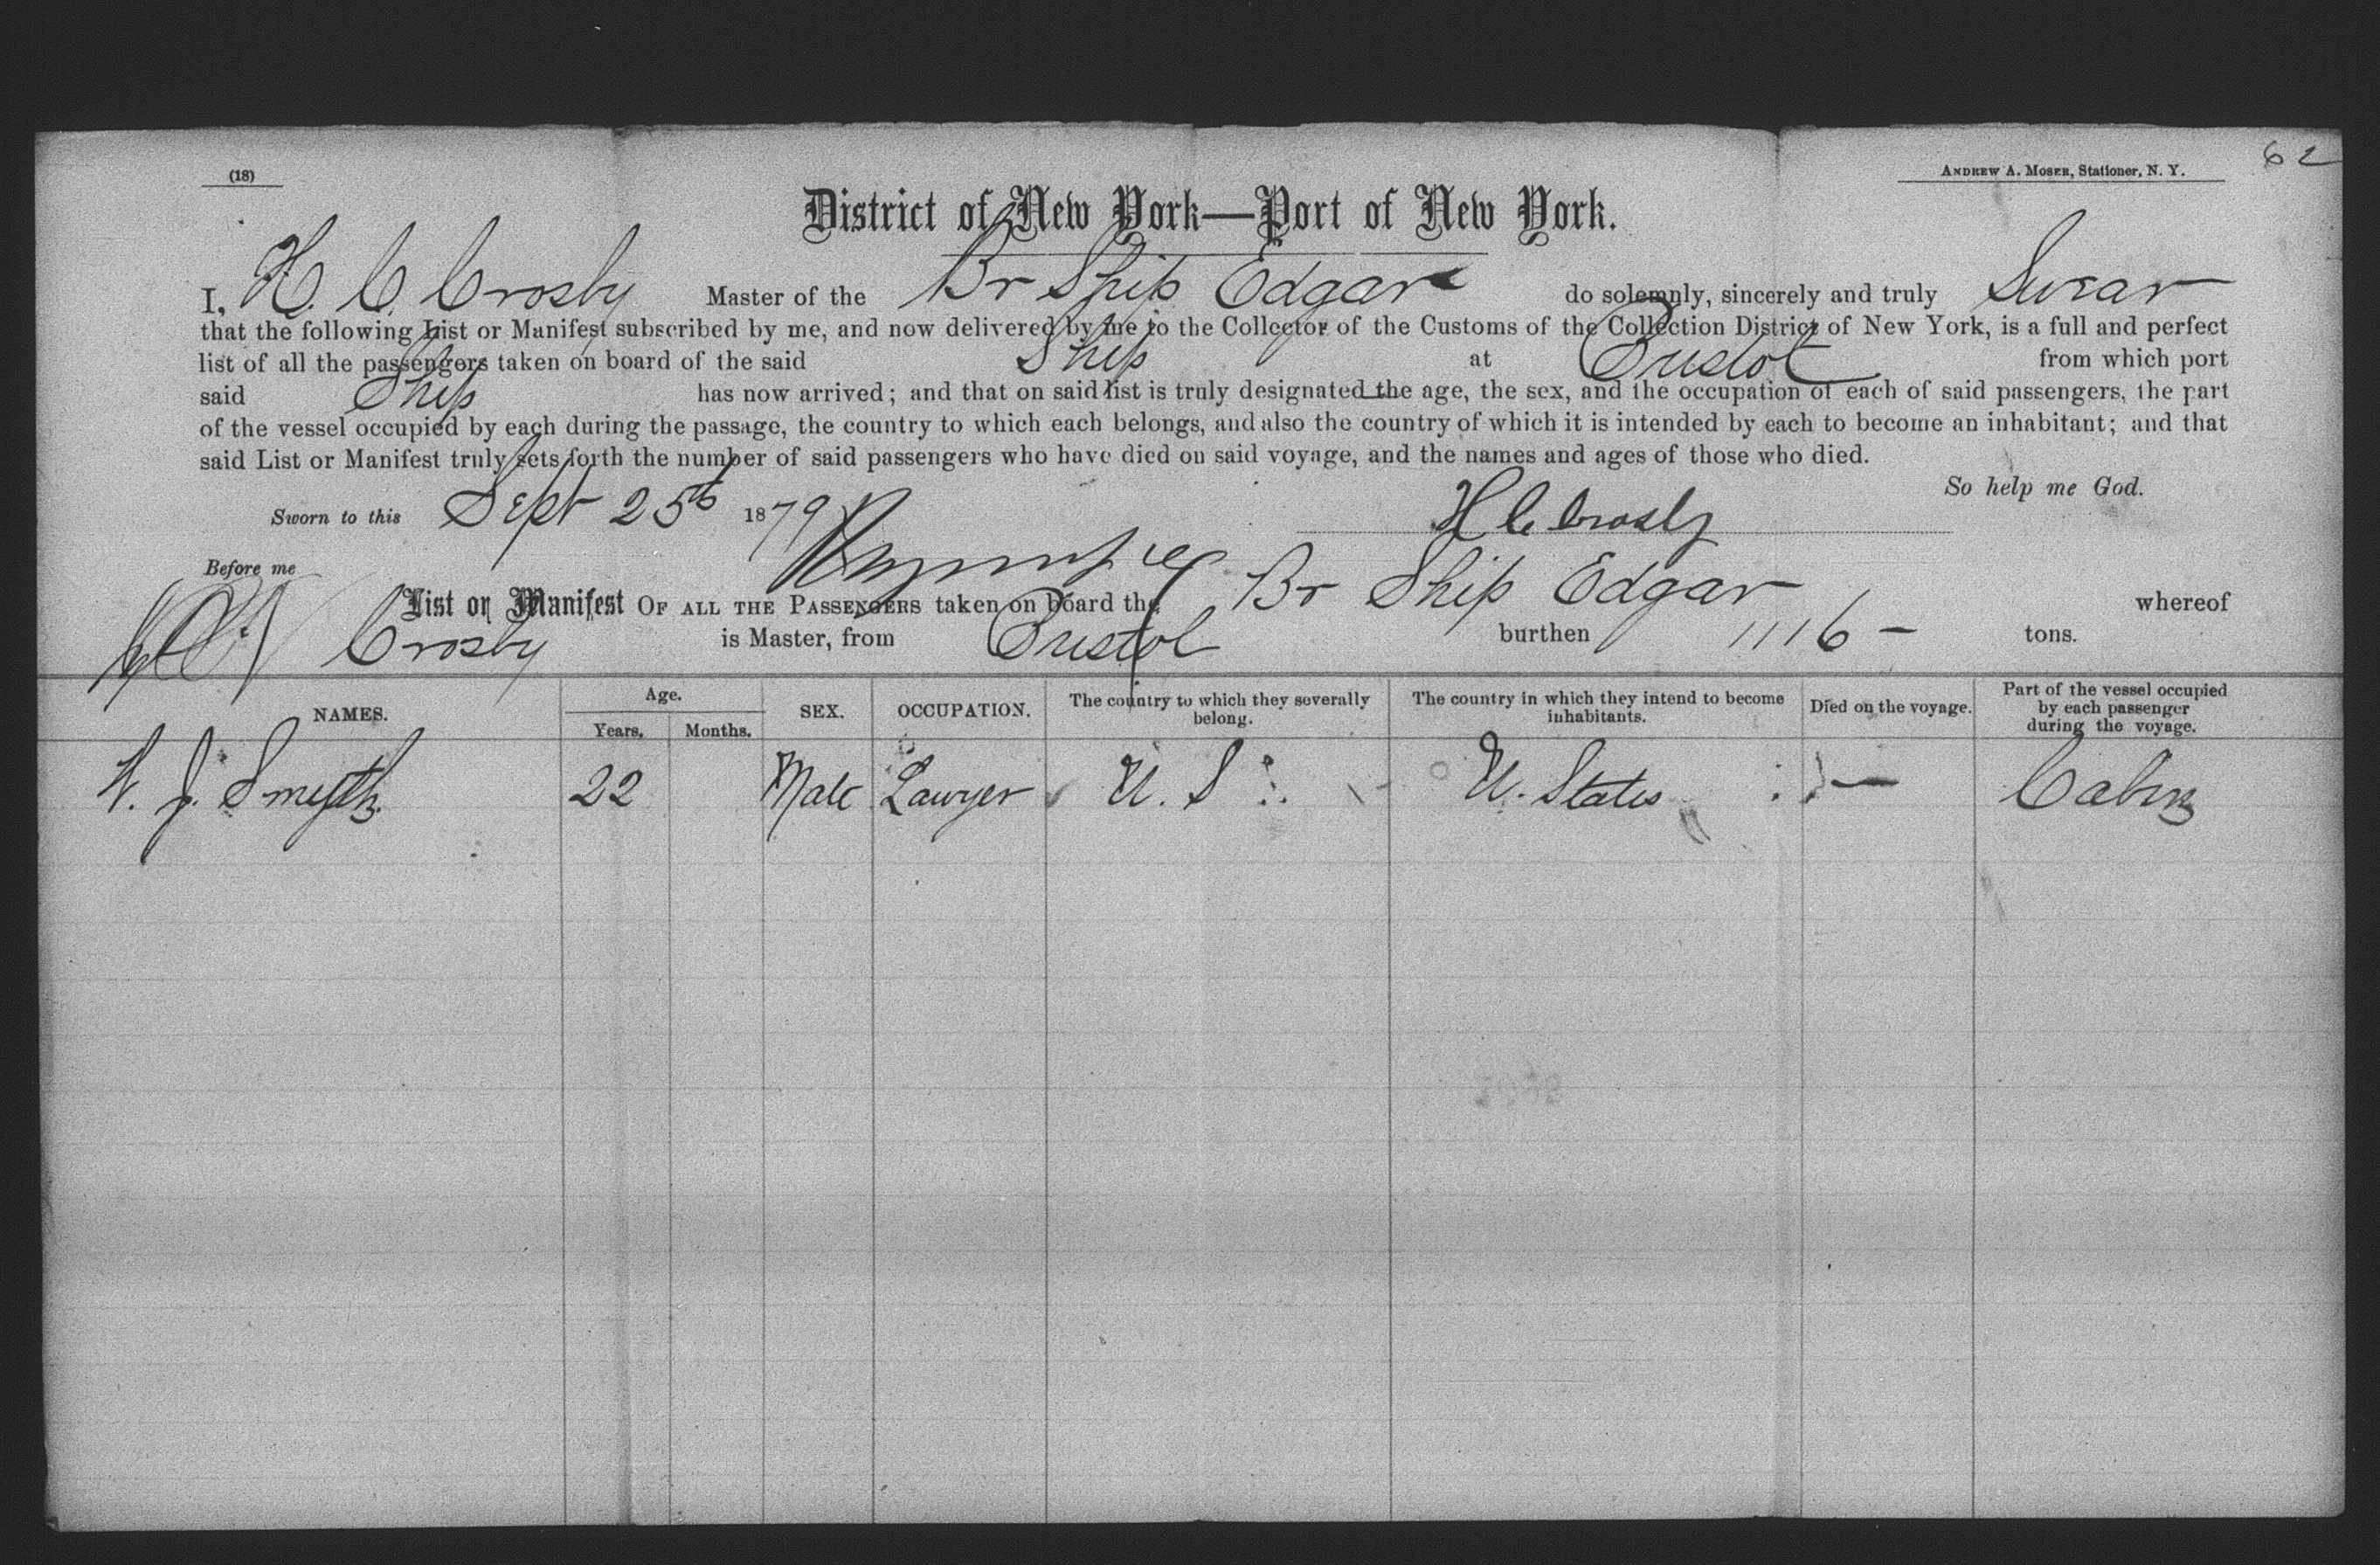 (18)
ANDREW A. MOSER, Stationer, N. Y.
62
District of New York—Port of New York.
I, H. C. Crosby Master of the Br Ship Edgar do solemnly, sincerely and truly Swear
that the following List or Manifest subscribed by me, and now delivered by me to the Collector of the Customs of the Collection District of New York, is a full and perfect
list of all the passengers taken on board of the said Ship at Bristol from which port
said Ship has now arrived; and that on said list is truly designated the age, the sex, and the occupation of each of said passengers, the part
of the vessel occupied by each during the passage, the country to which each belongs, and also the country of which it is intended by each to become an inhabitant; and that
said List or Manifest truly sets forth the number of said passengers who have died on said voyage, and the names and ages of those who died.
So help me God.
Sworn to this Sept 25th 1879 H C Crosby
Before me
List or Manifest OF ALL THE PASSENGERS taken on board the Br Ship Edgar whereof
Crosby is Master, from Bristol burthen 1116 — tons.
NAMES. Age. Years. Months. SEX. OCCUPATION. The country to which they severally belong. The country in which they intend to become inhabitants. Died on the voyage. Part of the vessel occupied by each passenger during the voyage.
J. Smyth 22 Male Lawyer U. S. U. States — Cabin